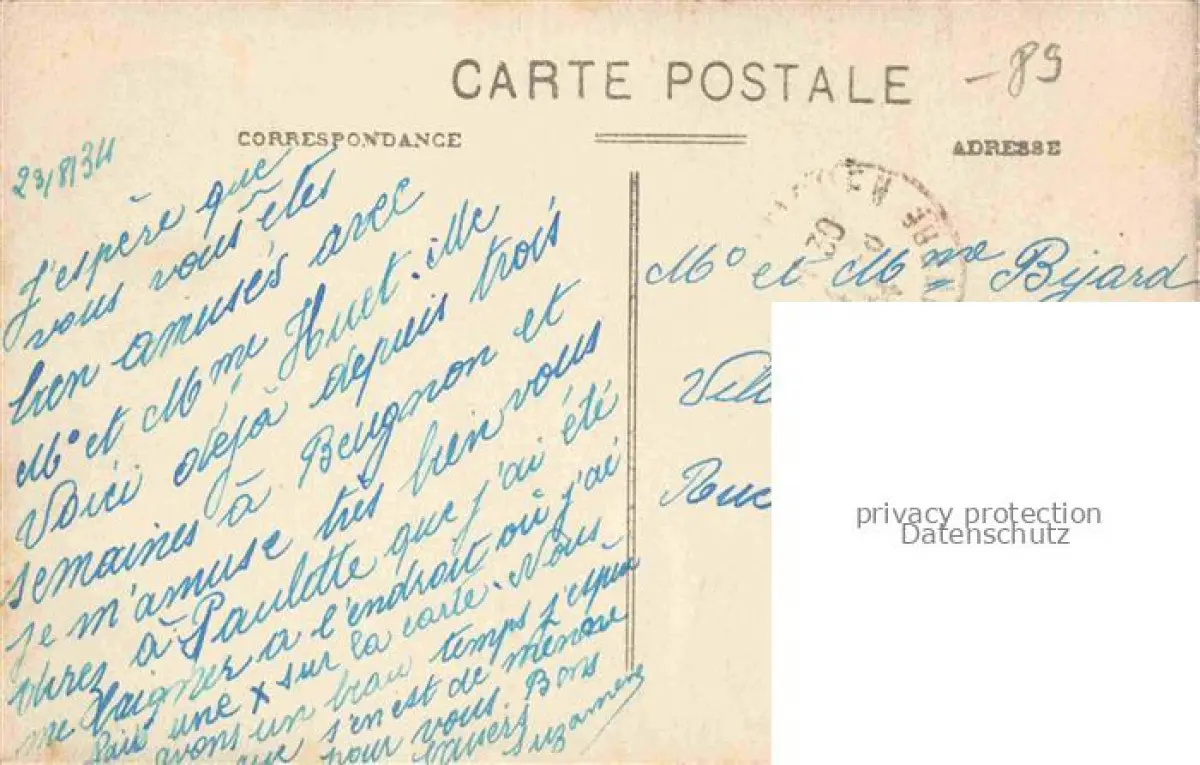 CARTE POSTALE
- 89
CORRESPONDANCE
ADRESSE
23/8/34
J'espère que
vous vous êtes
bien amusés avec
Mr et Mme Huet. ille
Voici déjà depuis trois
semaines à Beugnon et
je m'amuse très bien vous
direz à Paulette que j'ai été
me baigner a l'endroit où j'ai
fais une x sur la carte. Nous
avons un beau temps j'espère
que s'en est de même
pour vous. Bons
baisers
Suzanne
Mr et Mme Bijard
Vill
Rue
privacy protection
Datenschutz